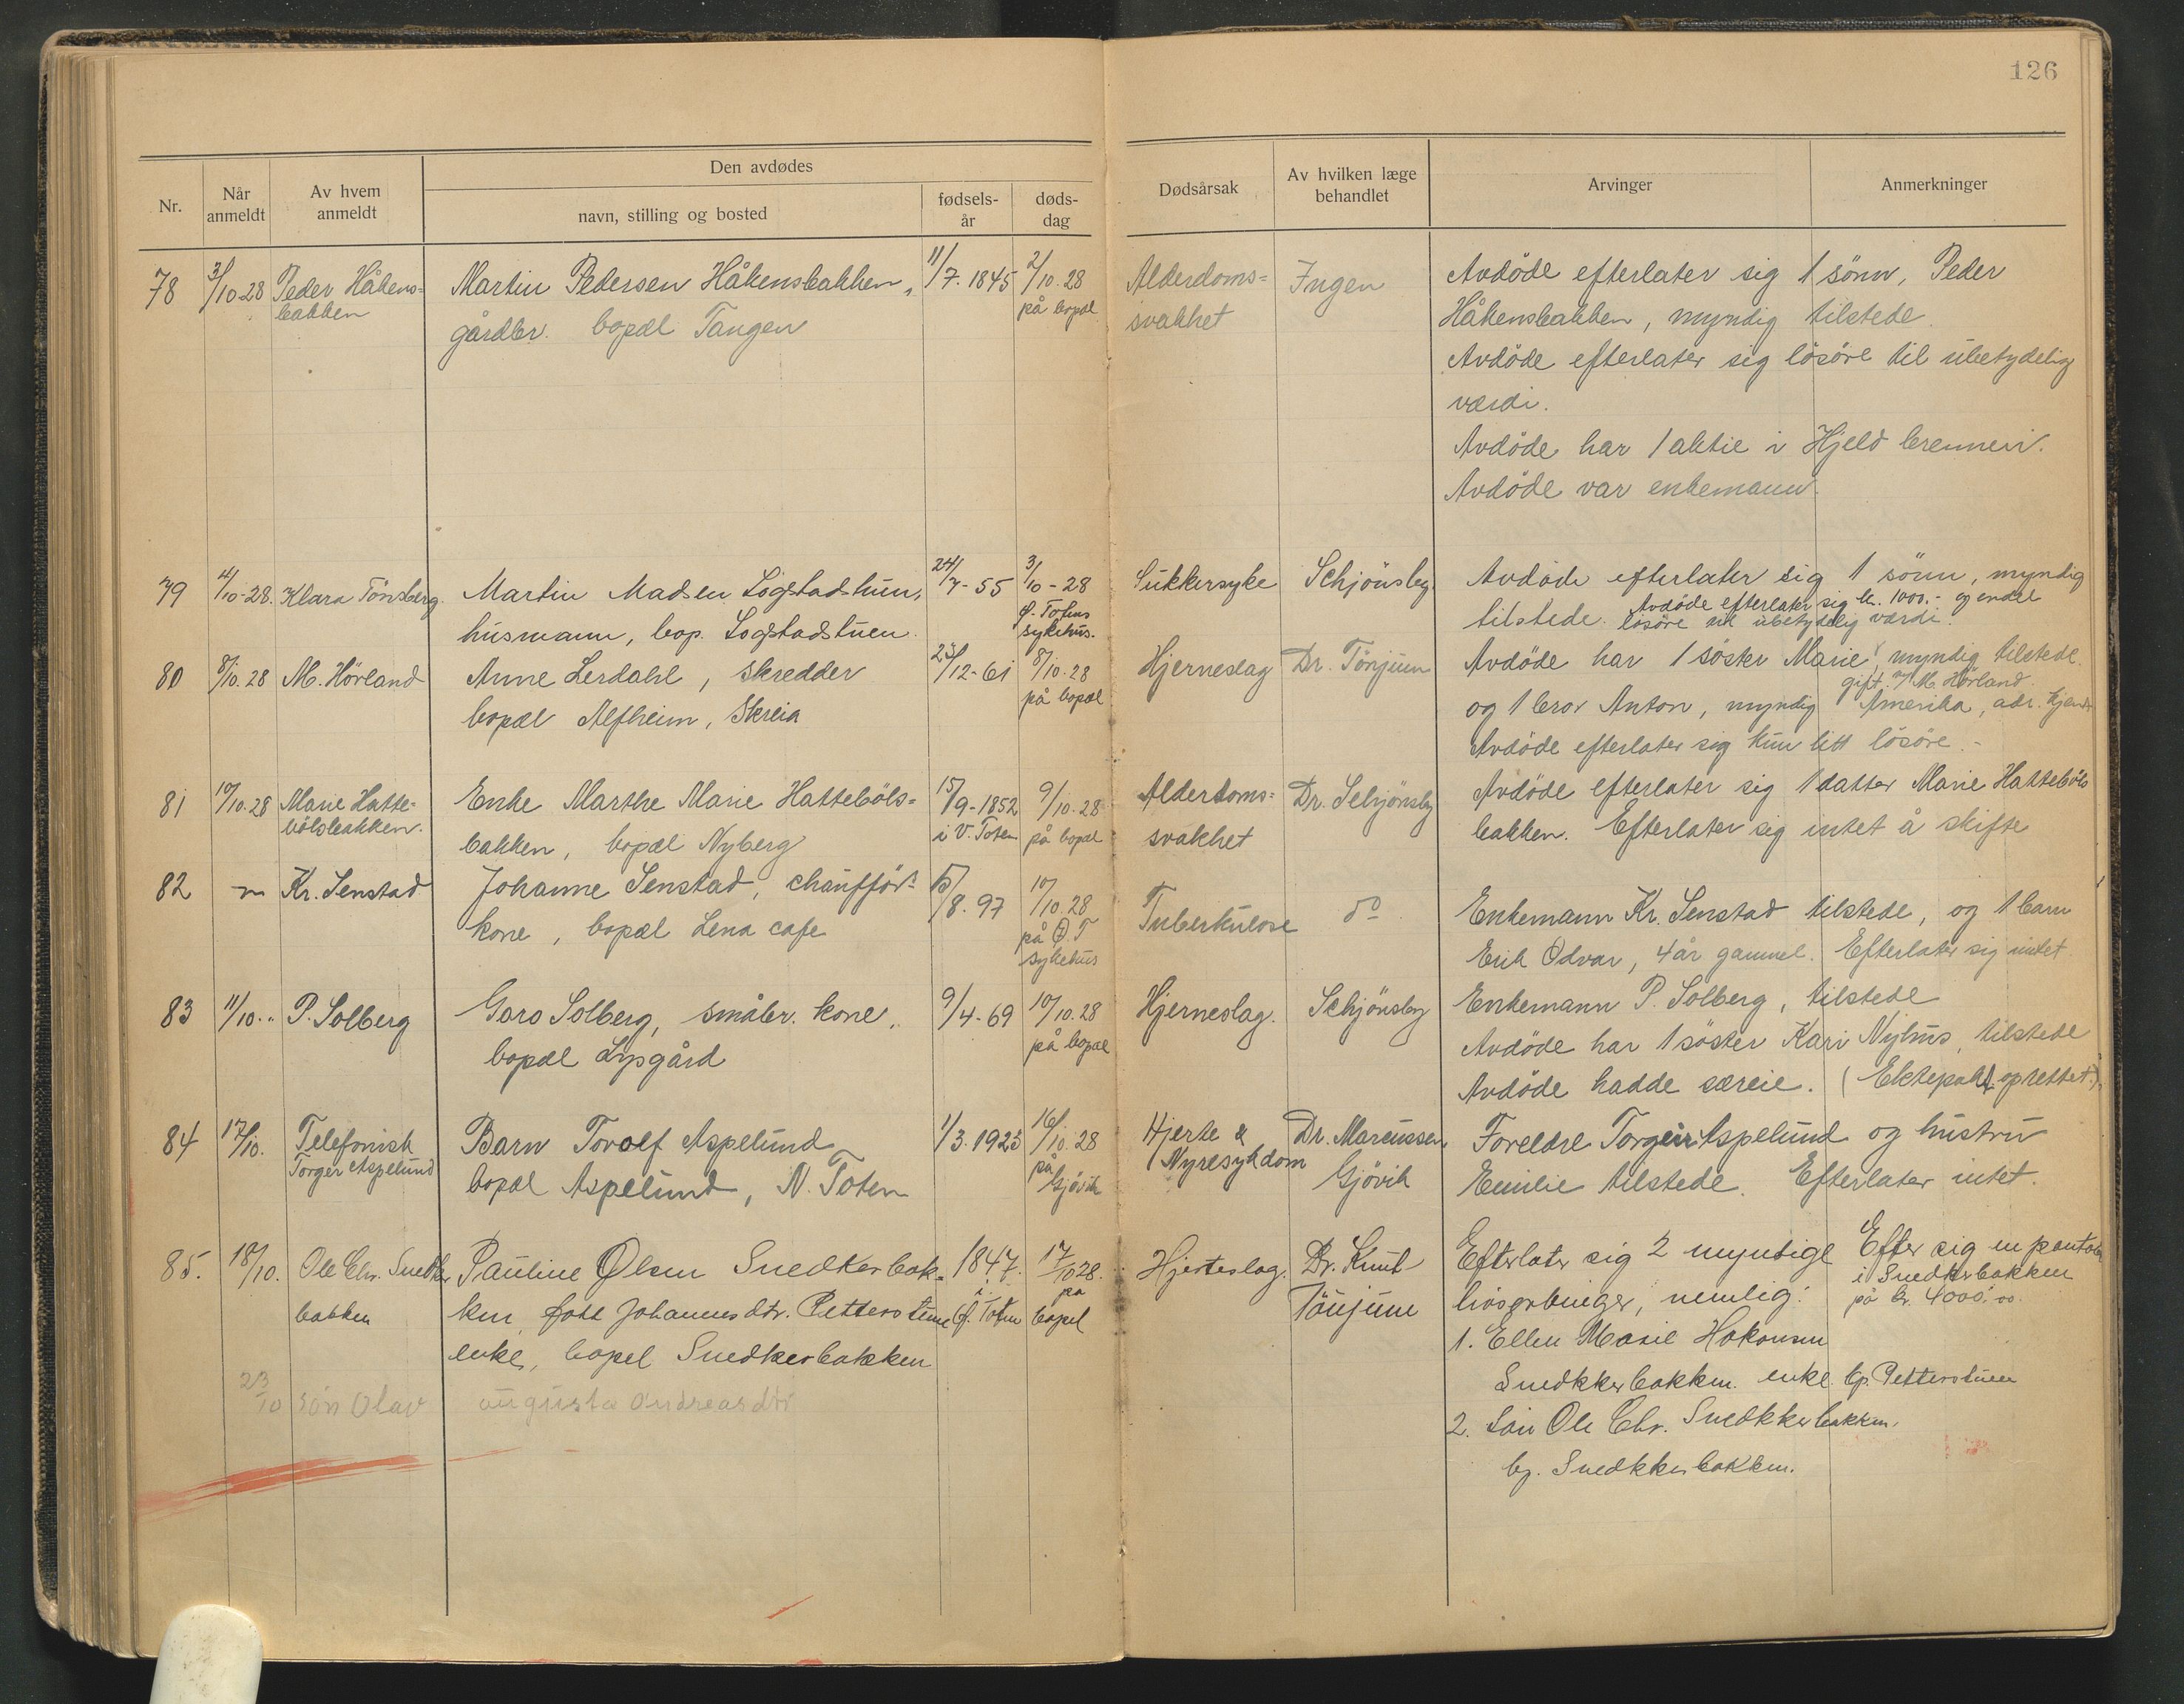 126
Den avdødes
Nr.
Når anmeldt
Av hvem anmeldt
navn, stilling og bosted
fødsels-år
døds-dag
Dødsårsak
Av hvilken læge behandlet
Arvinger
Anmerkninger
78 3/10-28 Peder Håkens= Martin Pedersen Håkensbakken, 11/7.1845 2/10.28 Alderdoms= Ingen Avdöde efterlater sig 1 sönn, Peder
bakken gårdbr. bopæl Tangen på bopæl svakhet Håkensbakken, myndig tilstede.
Avdöde efterlater sig lösöre til ubetydelig
værdi.
Avdöde har 1 aktie i Hjeld brenneri.
Avdöde var enkemann.
79 4/10-28. Klara Tönsberg. Martin Madsen Logstadstuen, 24/7-55 3/10-28 Sukkersyke Schjönsby Avdöde efterlater sig 1 sönn, myndig
husmann, bop. Logstadstuen. Ø. Totens sykehus. tilstede. Avdöde efterlater sig kr. 1000.- og endel
lösöre til ubetydelig værdi.
80 8/10.28 M. Hörland Anne Lerdahl, skredder 23/12-61 8/10.28 Hjerneslag Dr. Tönjum Avdöde har 1 söster Marie, myndig tilstede.
gift m/ M. Hörland.
bopæl Alfheim, Skreia på bopæl og 1 bror Anton, myndig Amerika, adr. kjendt
Avdöde efterlater sig kun litt lösöre.-
81 10/10.28 Marie Hatte= Enke Marthe Marie Hatteböls= 15/9-1852 9/10.28 Alderdoms= Dr. Schjönsby Avdöde efterlater sig 1 datter Marie Hatteböls
bölsbakken. bakken, bopæl Nyberg i V. Toten på bopæl svakhet bakken. Efterlater sig intet å skifte
82 Kr. Senstad Johanne Senstad, chaufför= 15/8.97 10/10.28 Tuberkulose do Enkemann Kr. Senstad tilstede, og 1 barn
kone, bopæl Lena cafe på Ø.T sykehus Erik Odvar, 4 år gammel. Efterlater sig intet
83 11/10.. P. Solberg Goro Solberg, småbr. kone, 9/4-69 10/10.28 Hjerneslag. Schjönsby Enkemann P. Solberg, tilstede
bopæl Lysgård på bopæl Avdöde har 1 söster Kari Nyhus, tilstede
Avdöde hadde særeie. (Ektepakt oprettet).
84 17/10. Telefonisk Barn Torolf Aspelund 1/3.1923 16/10.28 Hjerte & Dr. Marcussen Foreldre Torgeir Aspelund og hustru
Torger Aspelund bopæl Aspelund, N. Toten på Gjövik Nyresykdom Gjövik Emilie tilstede. Efterlater intet.
85. 18/10. Ole Chr. Snedker Pauline Olsen Snedkerbak- 1847. 17/10 28. Hjerteslag. Dr. Knut Efterlater sig 2 myndige Efter sig en pantobl
bakken ken, född Johannesdtr. Petterstuen i Ø. Toten på bopel Tönjum livsarvinger, nemlig: i Snedkerbakken
på kr. 4000.00.
enke, bopel Snedkerbakken 1. Ellen Marie Hakonsen
Snedkkerbakken. enke bp. Petterstuen
23/10 sön Olav augusta andreasdtr
2. Sön Ole Chr. Snedkkerbakken.
bp. Snedkkerbakken.